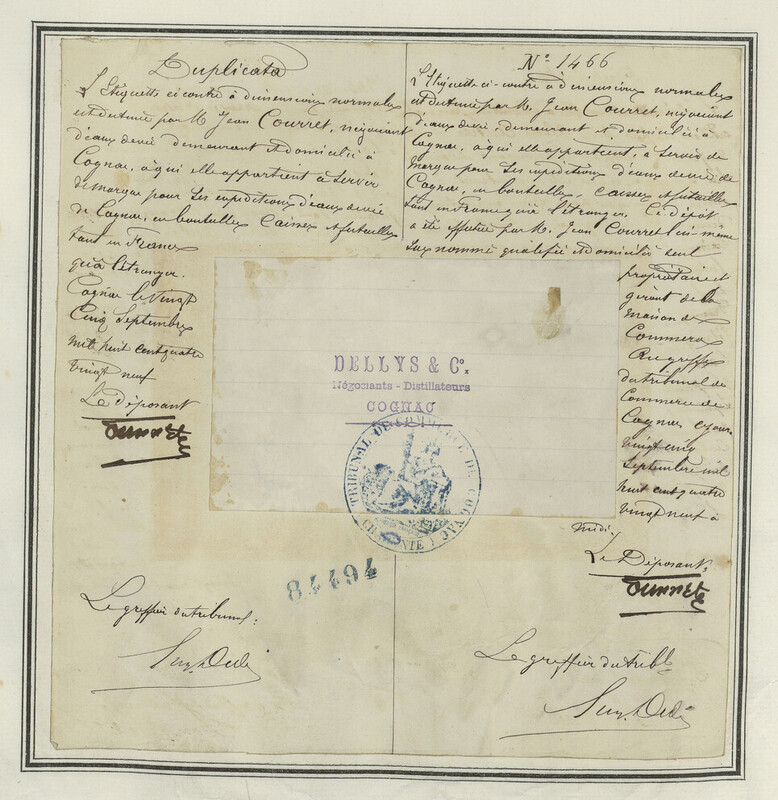 Duplicata
L'Etiquette ci contre à dimensions normales
est destinée par M. Jean Courret, négociant
d'eaux de vie demeurant et domicilié à
Cognac, à qui elle appartient à servir
de marque pour ses expéditions d'eaux de vie
de Cognac, en bouteilles caisses et futailles
tant en France
qu'à l'étranger.
Cognac le vingt
Cinq Septembre
mil huit cent quatre
vingt neuf
Le Déposant
Le greffier du tribunal:
No 1466
L'Etiquette ci-contre à dimensions normales
est destinée par M. Jean Courret, négociant
d'eaux de vie, demeurant et domicilié à
Cognac, à qui elle appartient, à servir de
marque pour ses expéditions d'eaux de vie de
Cognac, en bouteilles, caisses et futailles
tant en France qu'à l'étranger. Ce dépôt
a été effectué par M. Jean Courret lui-même
sus nommé qualifié et domicilié seul
propriétaire et
gérant de la
maison de
Commerce
Au greffe
du tribunal de
Commerce de
Cognac ce jour
vingt cinq
Septembre mil
huit cent quatre
vingt neuf à
midi.
Le Déposant,
Le greffier du tribl
DELLYS & Co.
Négociants - Distillateurs
COGNAC
TRIBUNAL DE COMMERCE DE COGNAC
(CHARENTE)
84494